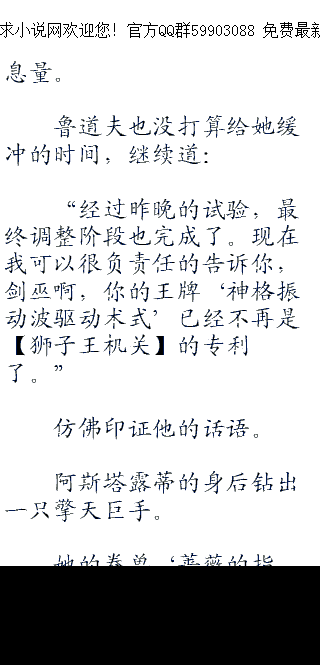 求小说网欢迎您! 官方QQ群59903088 免费最新
息量。
鲁道夫也没打算给她缓
冲的时间，继续道：
“经过昨晚的试验，最
终调整阶段也完成了。现在
我可以很负责任的告诉你，
剑巫啊，你的王牌‘神格振
动波驱动术式’已经不再是
【狮子王机关】的专利
了。”
仿佛印证他的话语。
阿斯塔露蒂的身后钻出
一只擎天巨手。
她的眷兽‘蔷薇的指